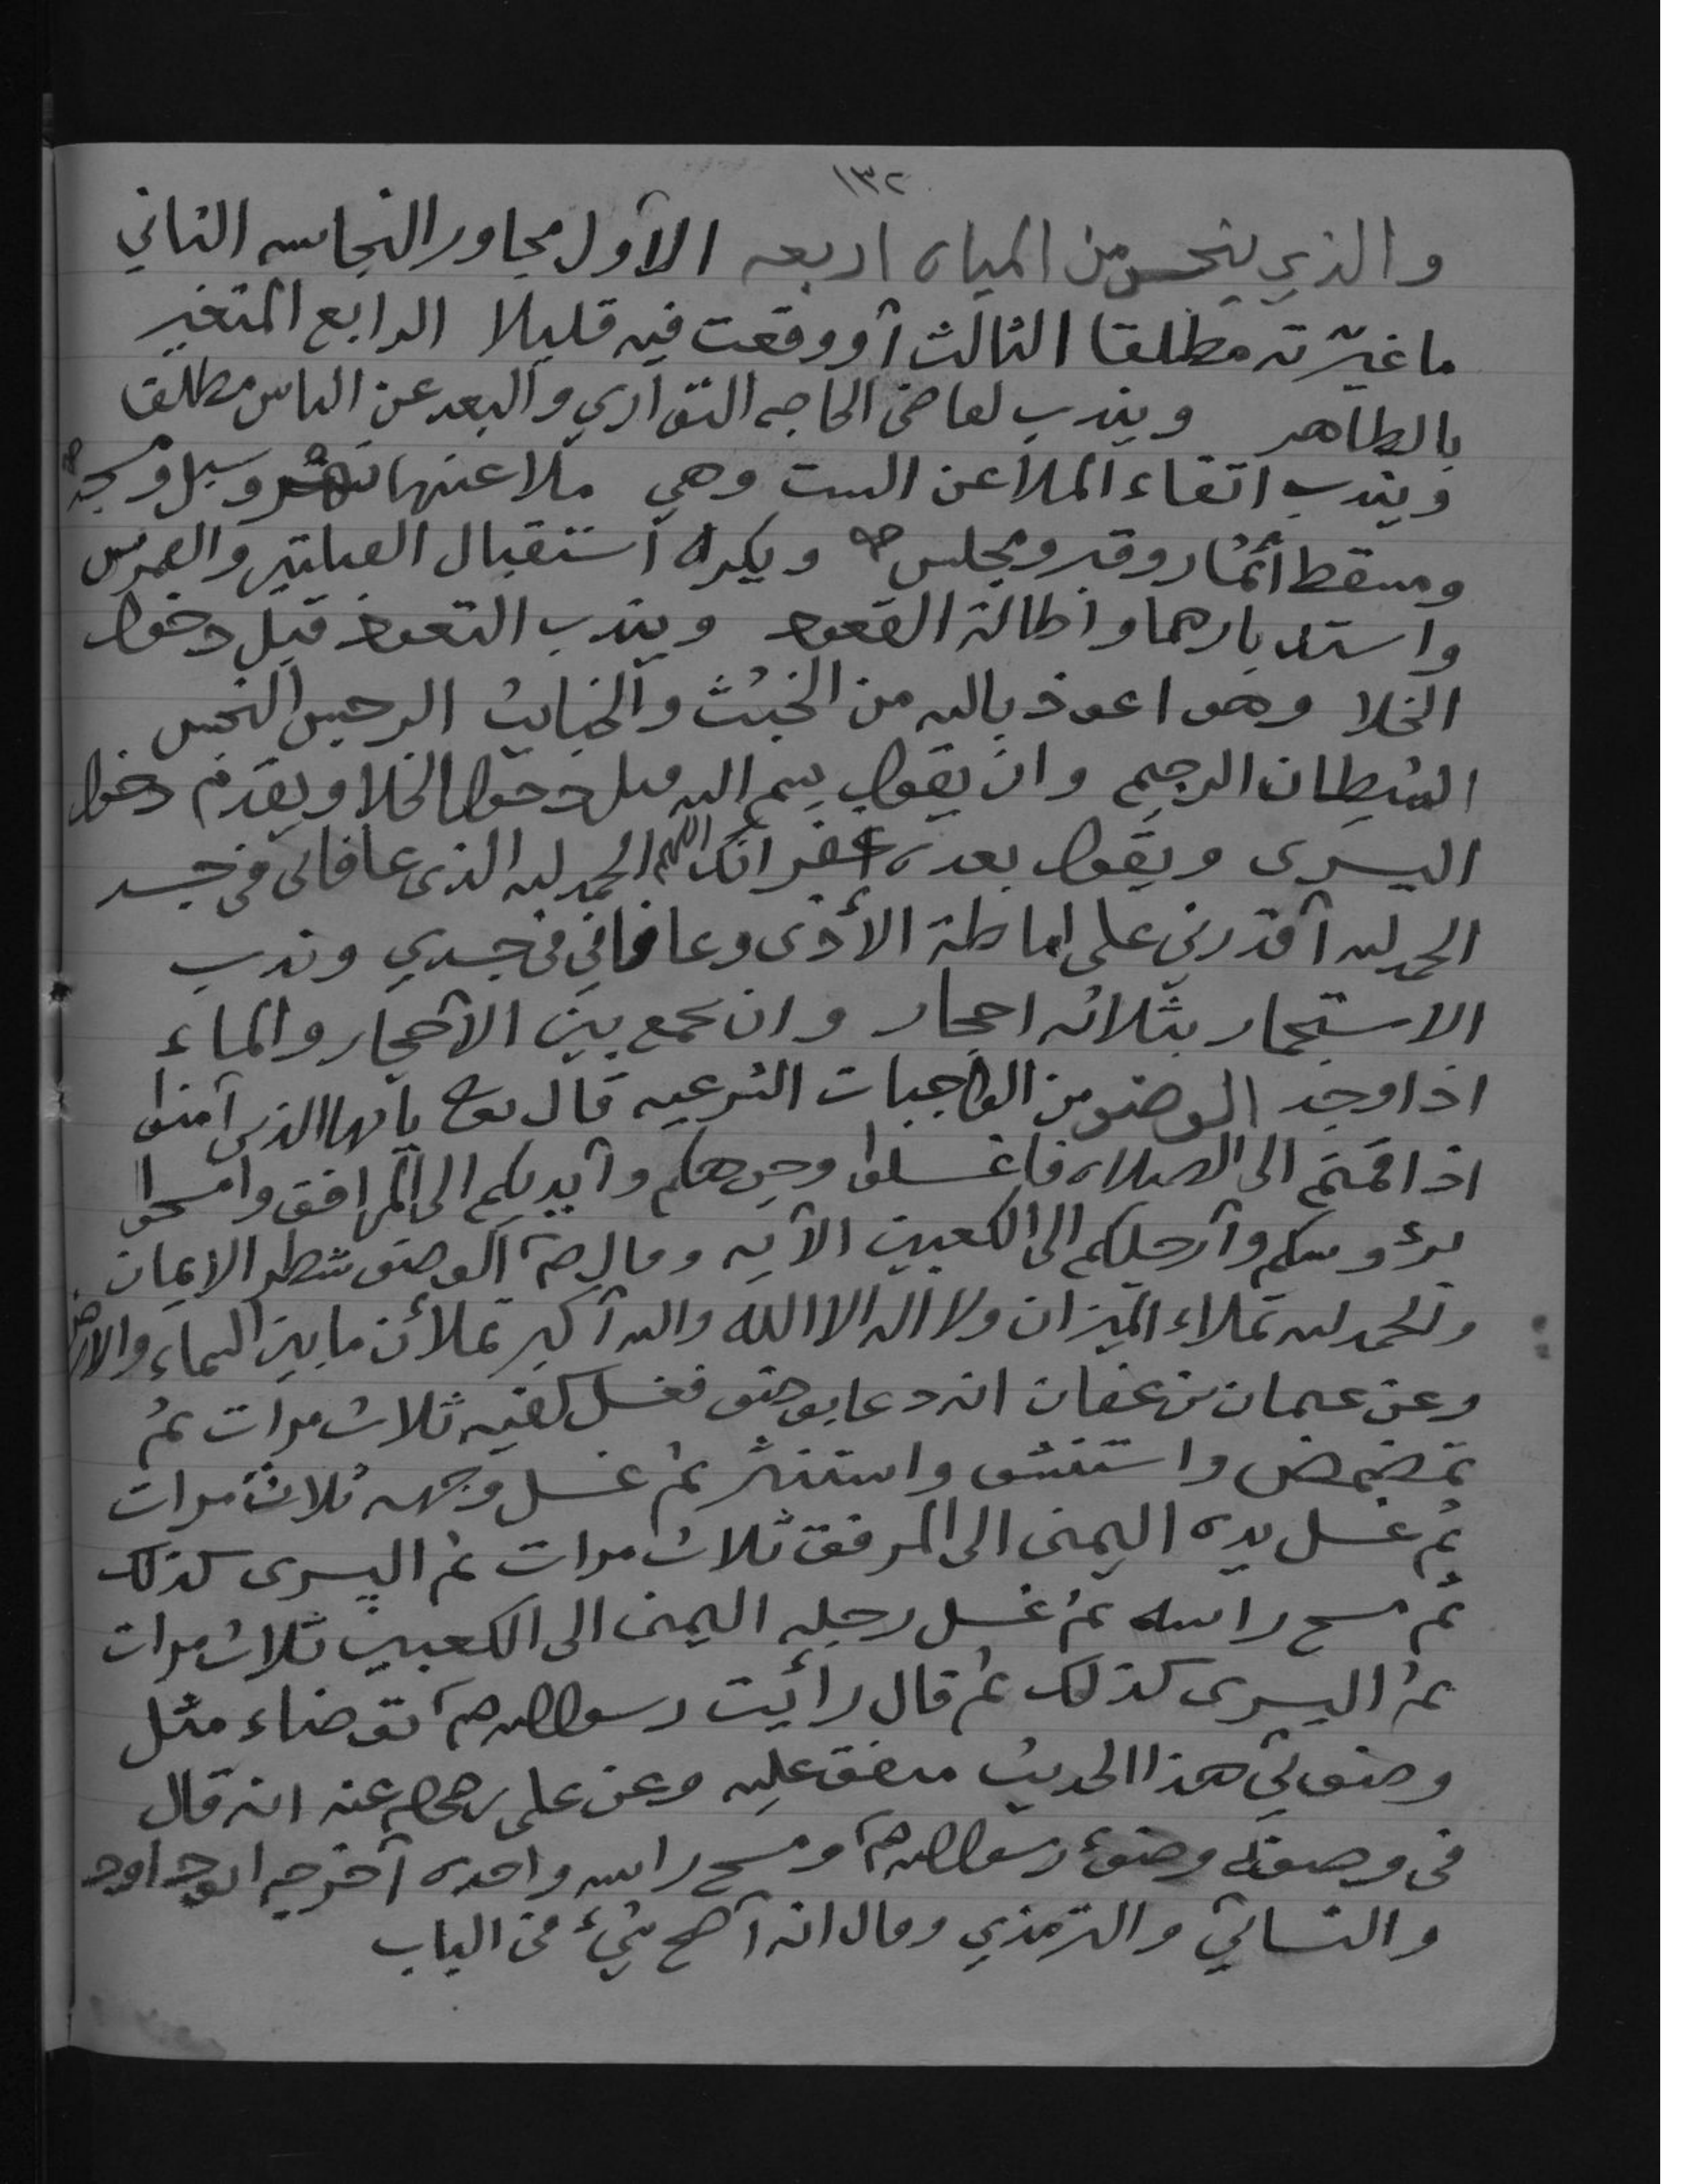 ١٣٢
والذي ينجس من المياه اربعه الأول مجاور النجاسه الثاني
ما غيّرته مطلقا الثالث أو وقعت فيه قليلا الرابع المتغير
بالطاهر ويندب لقاضي الحاجه التواري والبعد عن الناس مطلقا
ويندب اتقاء الملاعن الست وهي ملاعنها نهر وسبل ومسجد
ومسقط أثمار وقبر ومجلس ويكره استقبال القبلتين والقمرين
واستدبارهما واطالة القعود ويندب التعوذ قبل دخول
الخلا وهو اعوذ بالله من الخبث والخبايث الرجس النجس
الشيطان الرجيم وان يقول بسم الله قبل دخول الخلا ويقدم دخول
اليسرى ويقول بعده غفرانك اللهم الحمد لله الذي عافاني في جسد
الحمد لله أقدرني على اماطة الأذى وعافاني في جسدي وندب
الاستجمار بثلاثه احجار وان يجمع بين الأحجار والماء
اذا وجد الوضو من الواجبات الشرعيه قال تعا يا أيها الذين آمنوا
اذا قمتم الى الصلاه فاغسلوا وجوهكم وأيديكم الى المرافق وامسحوا
برؤوسكم وأرجلكم الى الكعبين الآيه وقال ص الوضو شطر الايمان
والحمد لله تملاء الميزان ولا اله الا الله والله أكبر تملأن ما بين السماء والارض
وعن عثمان بن عفان انه دعا بوضو فغسل كفيه ثلاث مرات ثم
تمضمض واستنشق واستنثر ثم غسل وجهه ثلاث مرات
ثم غسل يده اليمنى الى المرفق ثلاث مرات ثم اليسرى كذلك
ثم مسح راسه ثم غسل رجله اليمنى الى الكعبين ثلاث مرات
ثم اليسرى كذلك ثم قال رأيت رسول الله ص توضاء مثل
وضوئي هذا الحديث متفق عليه وعن علي رضي الله عنه انه قال
في وضوء رسول الله ص ومسح راسه واحده أخرجه ابو داود
والنسائي والترمذي وقال انه أصح شيء في الباب